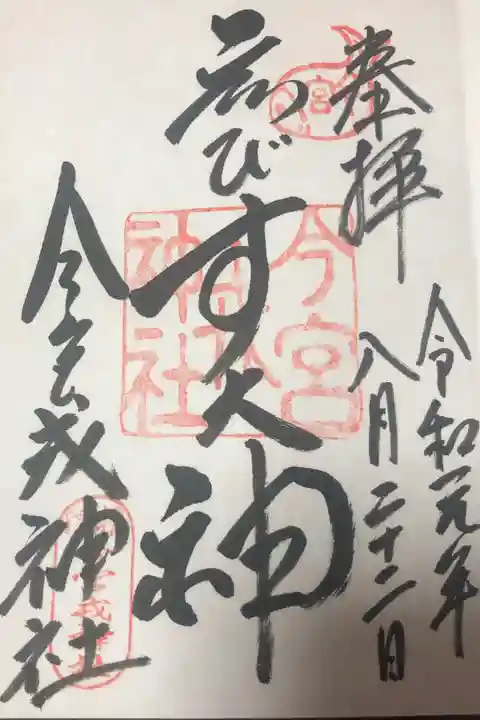 奉拝
令和元年
八月二十二日
ゑびす大神
今宮戎神社
今宮
神社
宮